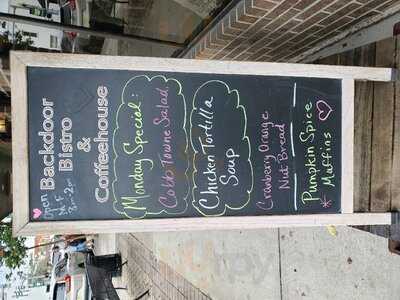 Backdoor
Bistro
&
Coffeehouse
Open
M-F
Monday Special:
Cobb Towne Salad,
Chicken Tortilla
Soup
Cranberry Orange
Nut Bread
Pumpkin Spice
Muffins